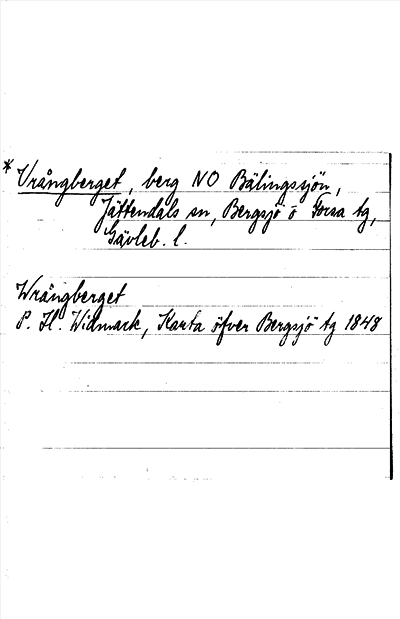 * Vrångberget, berg NO Bälingssjön,
Jättendals sn, Bergsjö o Forsa tg,
Gävleb. l.
Wrångberget
P. H. Widmark, Karta öfver Bergsjö tg 1848